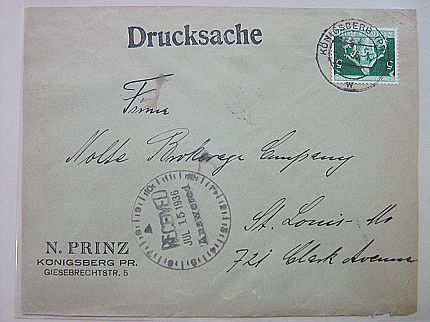 Drucksache
KÖNIGSBERG (PR)
W
5 5
Firma
Nolte Brokerage Company
RECEIVED
JUL 15 1936
Answered
St. Louis-Mo
721 Clark Avenue
N. PRINZ
KÖNIGSBERG PR.
GIESEBRECHTSTR. 5